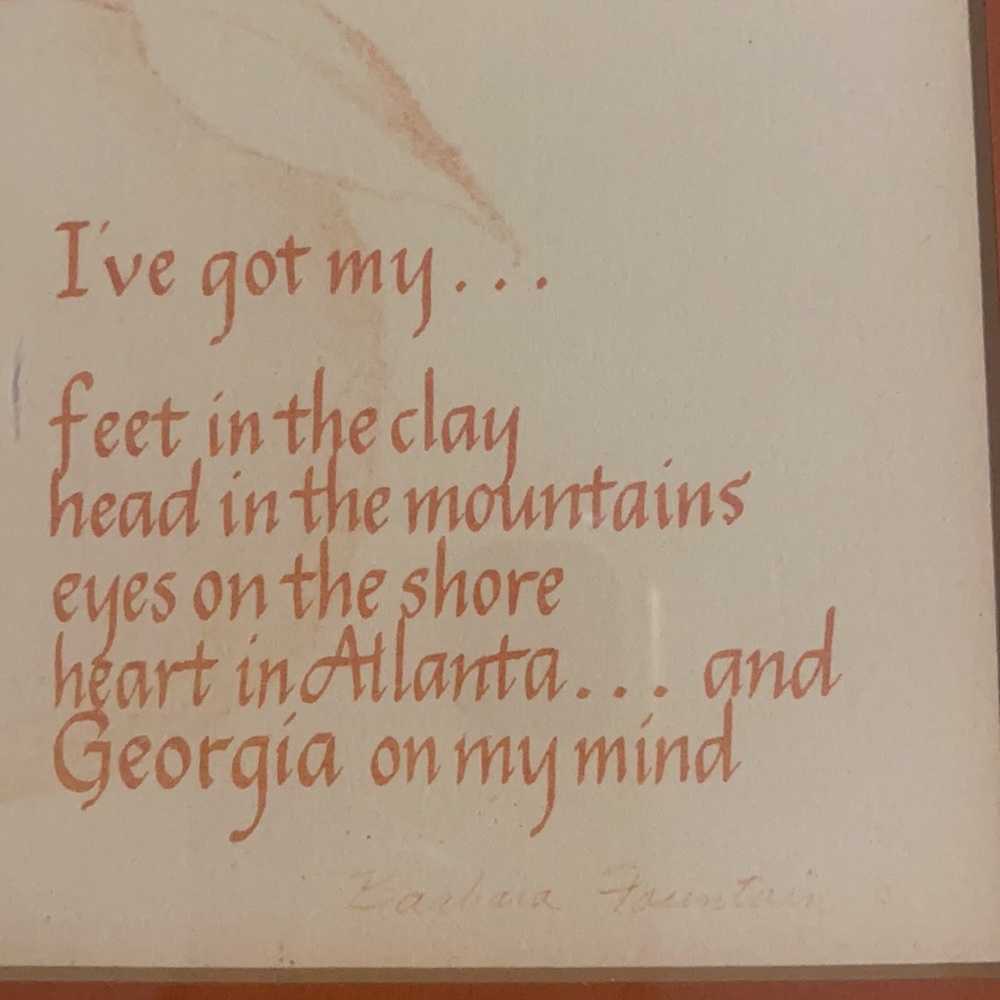 I've got my...
feet in the clay
head in the mountains
eyes on the shore
heart in Atlanta... and
Georgia on my mind
Barbara Fountain